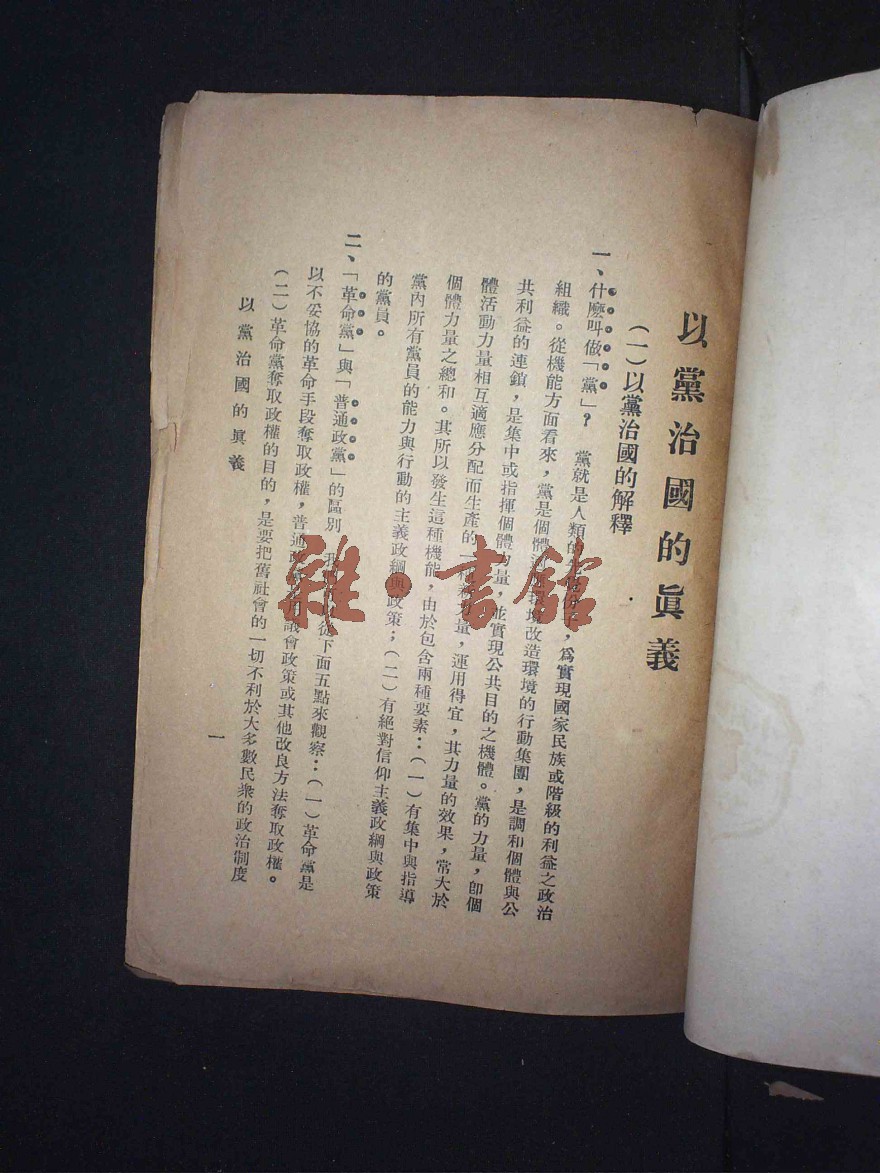 以黨治國的眞義
（一）以黨治國的解釋
一、什麽叫做「黨」？　黨就是人類的，爲實現國家民族或階級的利益之政治
組織。從機能方面看來，黨是個體環境改造環境的行動集團，是調和個體與公
共利益的連鎖，是集中或指揮個體力量，並實現公共目的之機體。黨的力量，卽個
體活動力量相互適應分配而生產的一種力量，運用得宜，其力量的效果，常大於
個體力量之總和。其所以發生這種機能，由於包含兩種要素：（一）有集中與指導
黨內所有黨員的能力與行動的主義政綱與政策；（二）有絕對信仰主義政綱與政策
的黨員。
二、「革命黨」與「普通政黨」的區別　從下面五點來觀察：（一）革命黨是
以不妥協的革命手段奪取政權，普通政議會政策或其他改良方法奪取政權。
（二）革命黨奪取政權的目的，是要把舊社會的一切不利於大多數民衆的政治制度
以黨治國的眞義
一
雜·書館